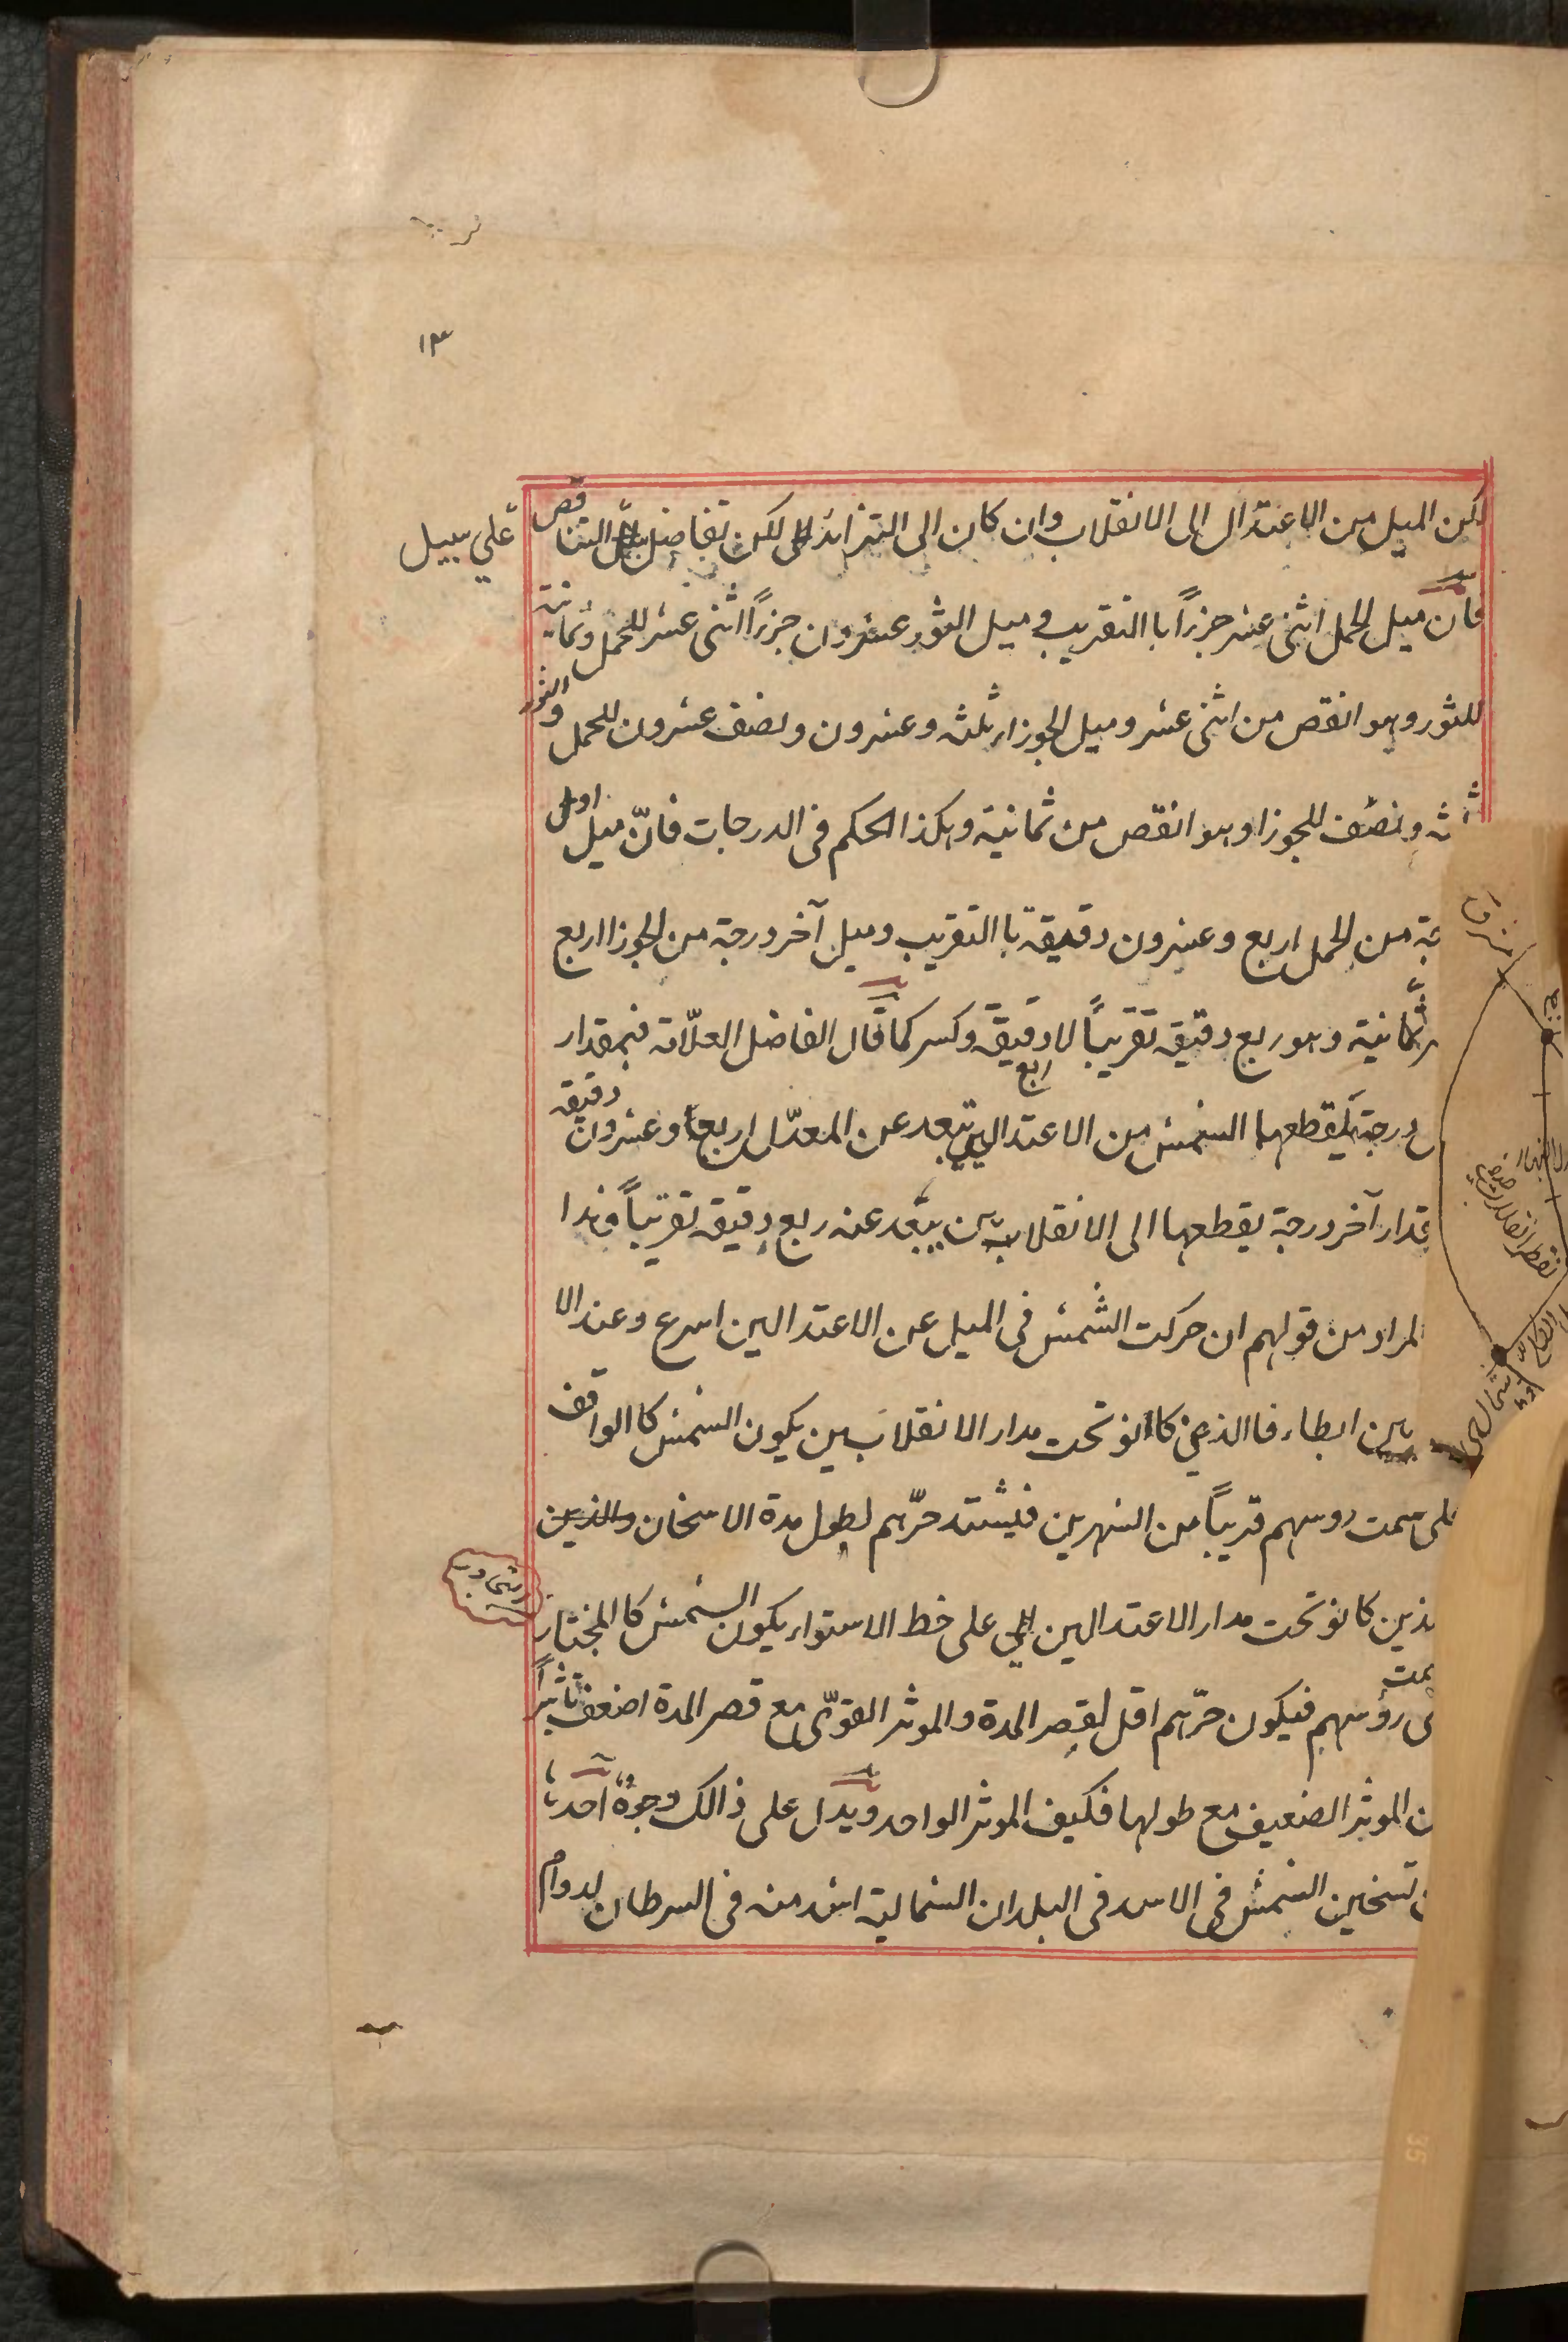 ١٣
لكن الميل من الاعتدال الى الانقلاب وان كان الى التزائد لكن تفاضل التناقص
على سبيل
فان ميل الحمل اثنى عشر جزءاً با التقريب و ميل الثور عشرون جزءاً اثنى عشر للحمل وثمانية
للثور وهو انقص من اثنى عشر وميل الجوزا ثلثه وعشرون ونصف عشرون للحمل والثور
ثه ونصف للجوزا وهو انقص من ثمانية وهكذا الحكم فى الدرجات فانّ ميل اول
جة من الحمل اربع وعشرون دقيقة با التقريب وميل آخر درجة من الجوزا اربع
ثمانية وهو ربع دقيقه تقريباً لا دقيقة وكسر كما قال الفاضل العلّامة فبمقدار
درجة يقطعها الشمس من الاعتدالين تبعد عن المعدّل اربع وعشرون دقيقه
قدار آخر درجة يقطعها الى الانقلابين يبعد عنه ربع دقيقه تقريباً وهذا
لمراد من قولهم ان حركت الشمس فى الميل عن الاعتدالين اسرع وعند الا
بين ابطاء فا الذين كانو تحت مدار الانقلابين يكون الشمس كا الواقف
على سمت روسهم قريباً من الشهرين فيشتد حرّهم لطول مدة الاسخان والذين
لذين كانو تحت مدار الاعتدالين على خط الاستواء يكون الشمس كا المجتاز
سمت
رؤسهم فيكون حرّهم اقل لقصر المدة والموثر القوّى مع قصر المدة اضعف تاثيراً
ن الموثر الضعيف مع طولها فكيف الموثر الواحد ويدل على ذالك وجوه احدها
تسخين الشمش فى الاسد فى البلدان الشمالية اشد منه فى السرطان لدوام